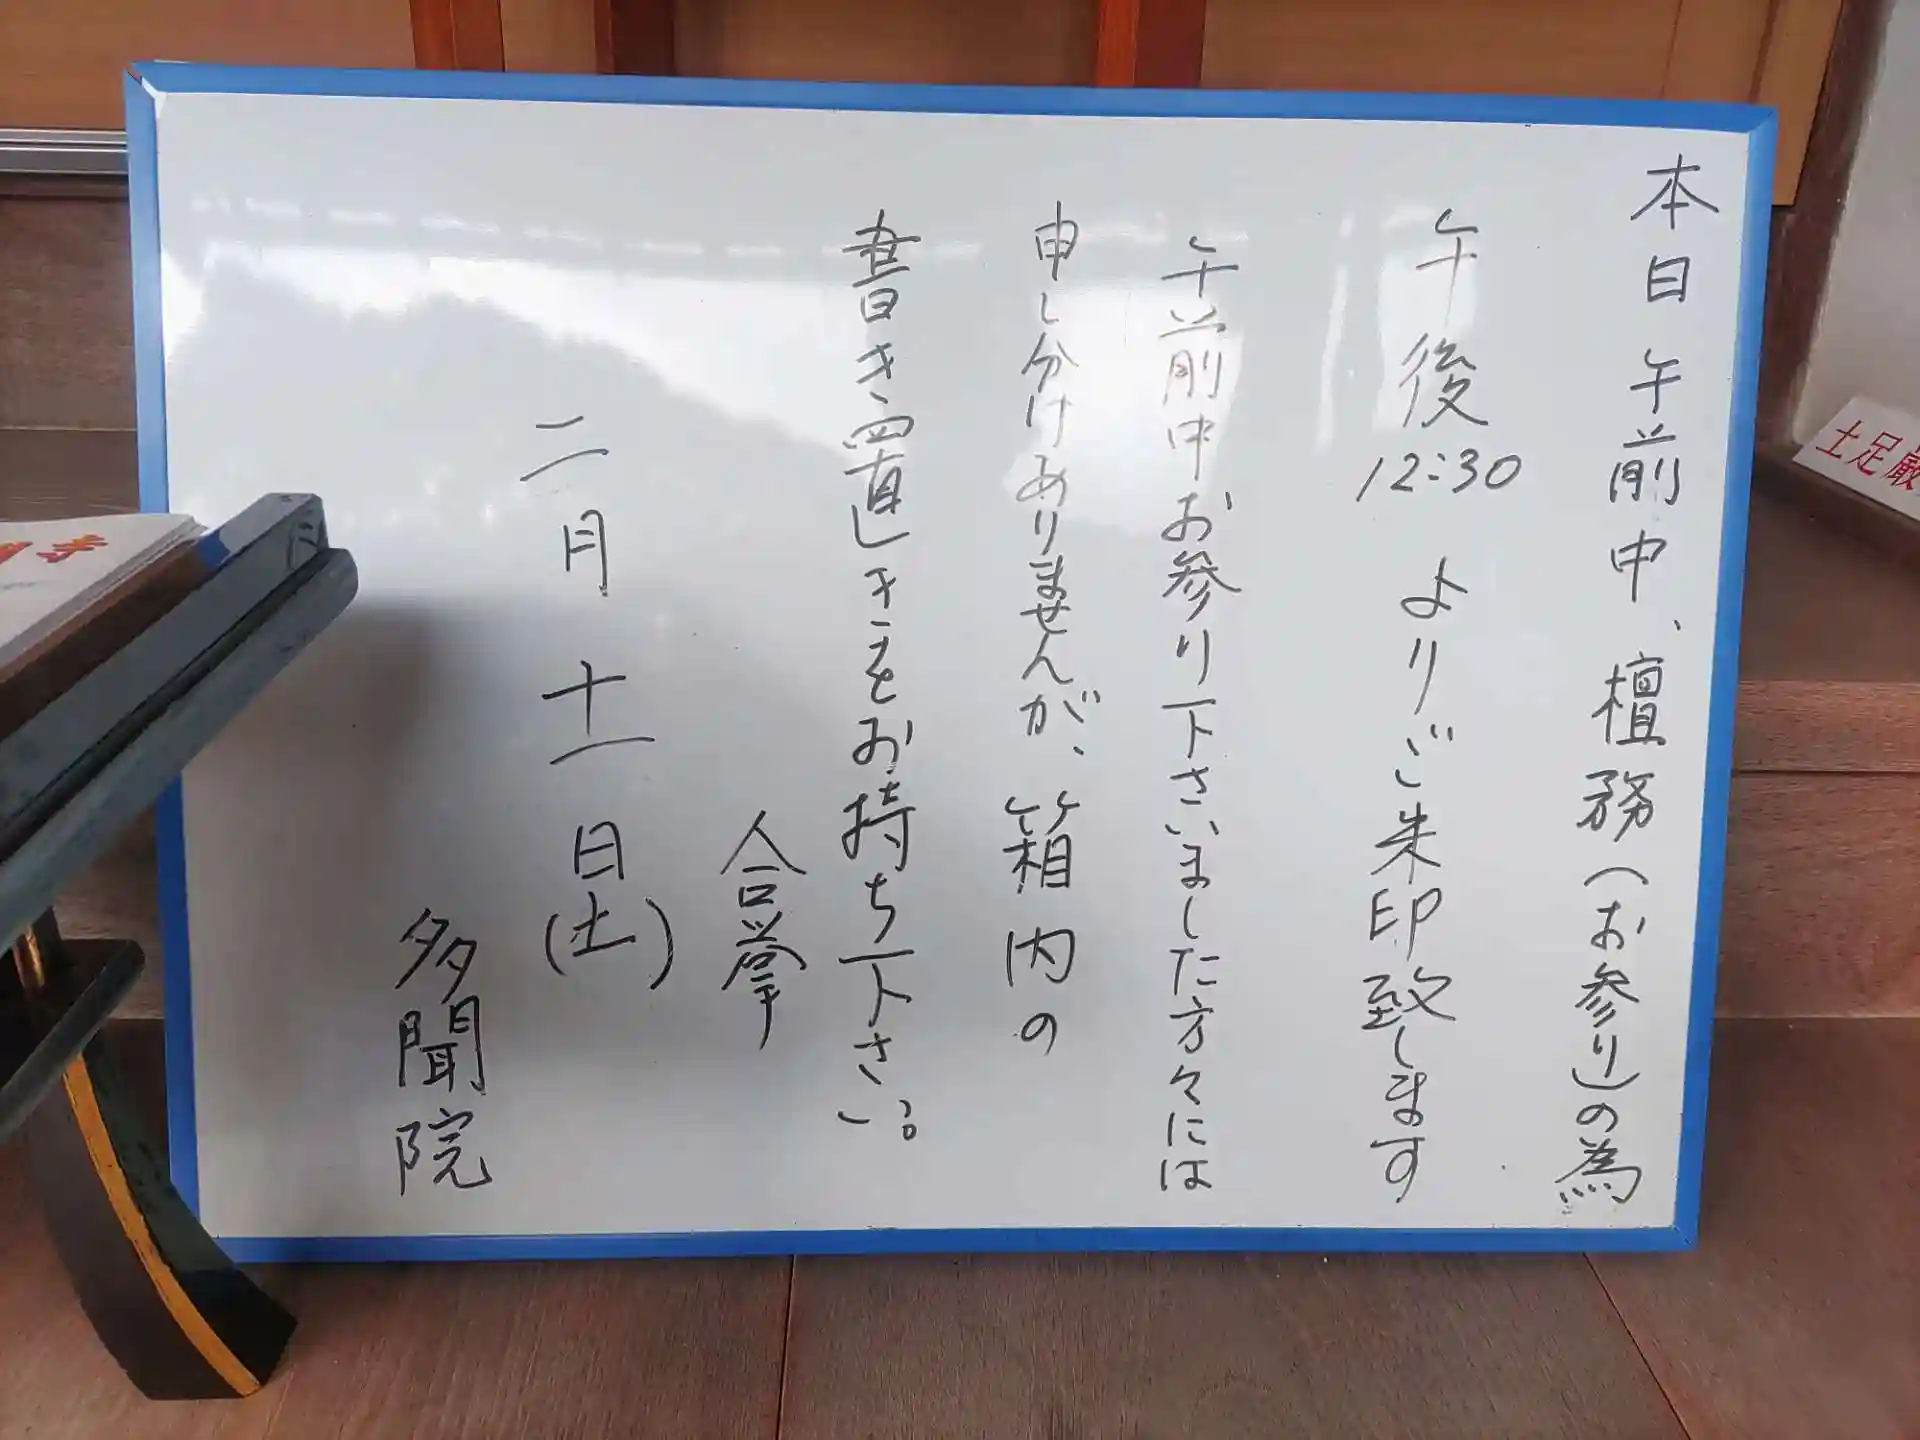 本日午前中、檀務(お参り)の為
午後12:30よりご朱印致します
午前中お参り下さいました方々には
申し分けありませんが、箱内の
書き置きをお持ち下さい。
合掌
二月十一日(土)
多聞院
土足厳